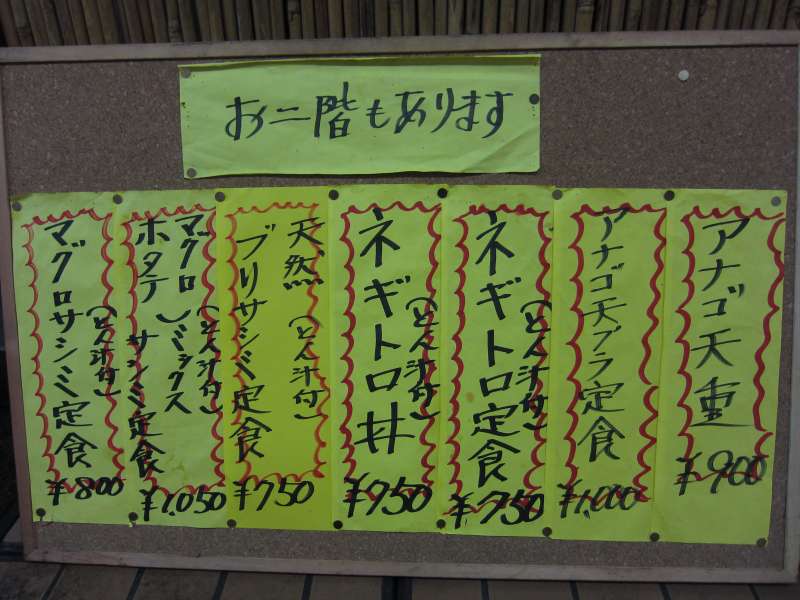 お二階もあります
アナゴ天重
¥900
アナゴ天プラ定食
¥1,000
ネギトロ定食
(とん汁付)
¥750
ネギトロ丼
(とん汁付)
¥750
天然
ブリサシミ定食
(とん汁付)
¥750
マグロ
ホタテ
ミックス
サシミ定食
(とん汁付)
¥1,050
マグロサシミ定食
(とん汁付)
¥800